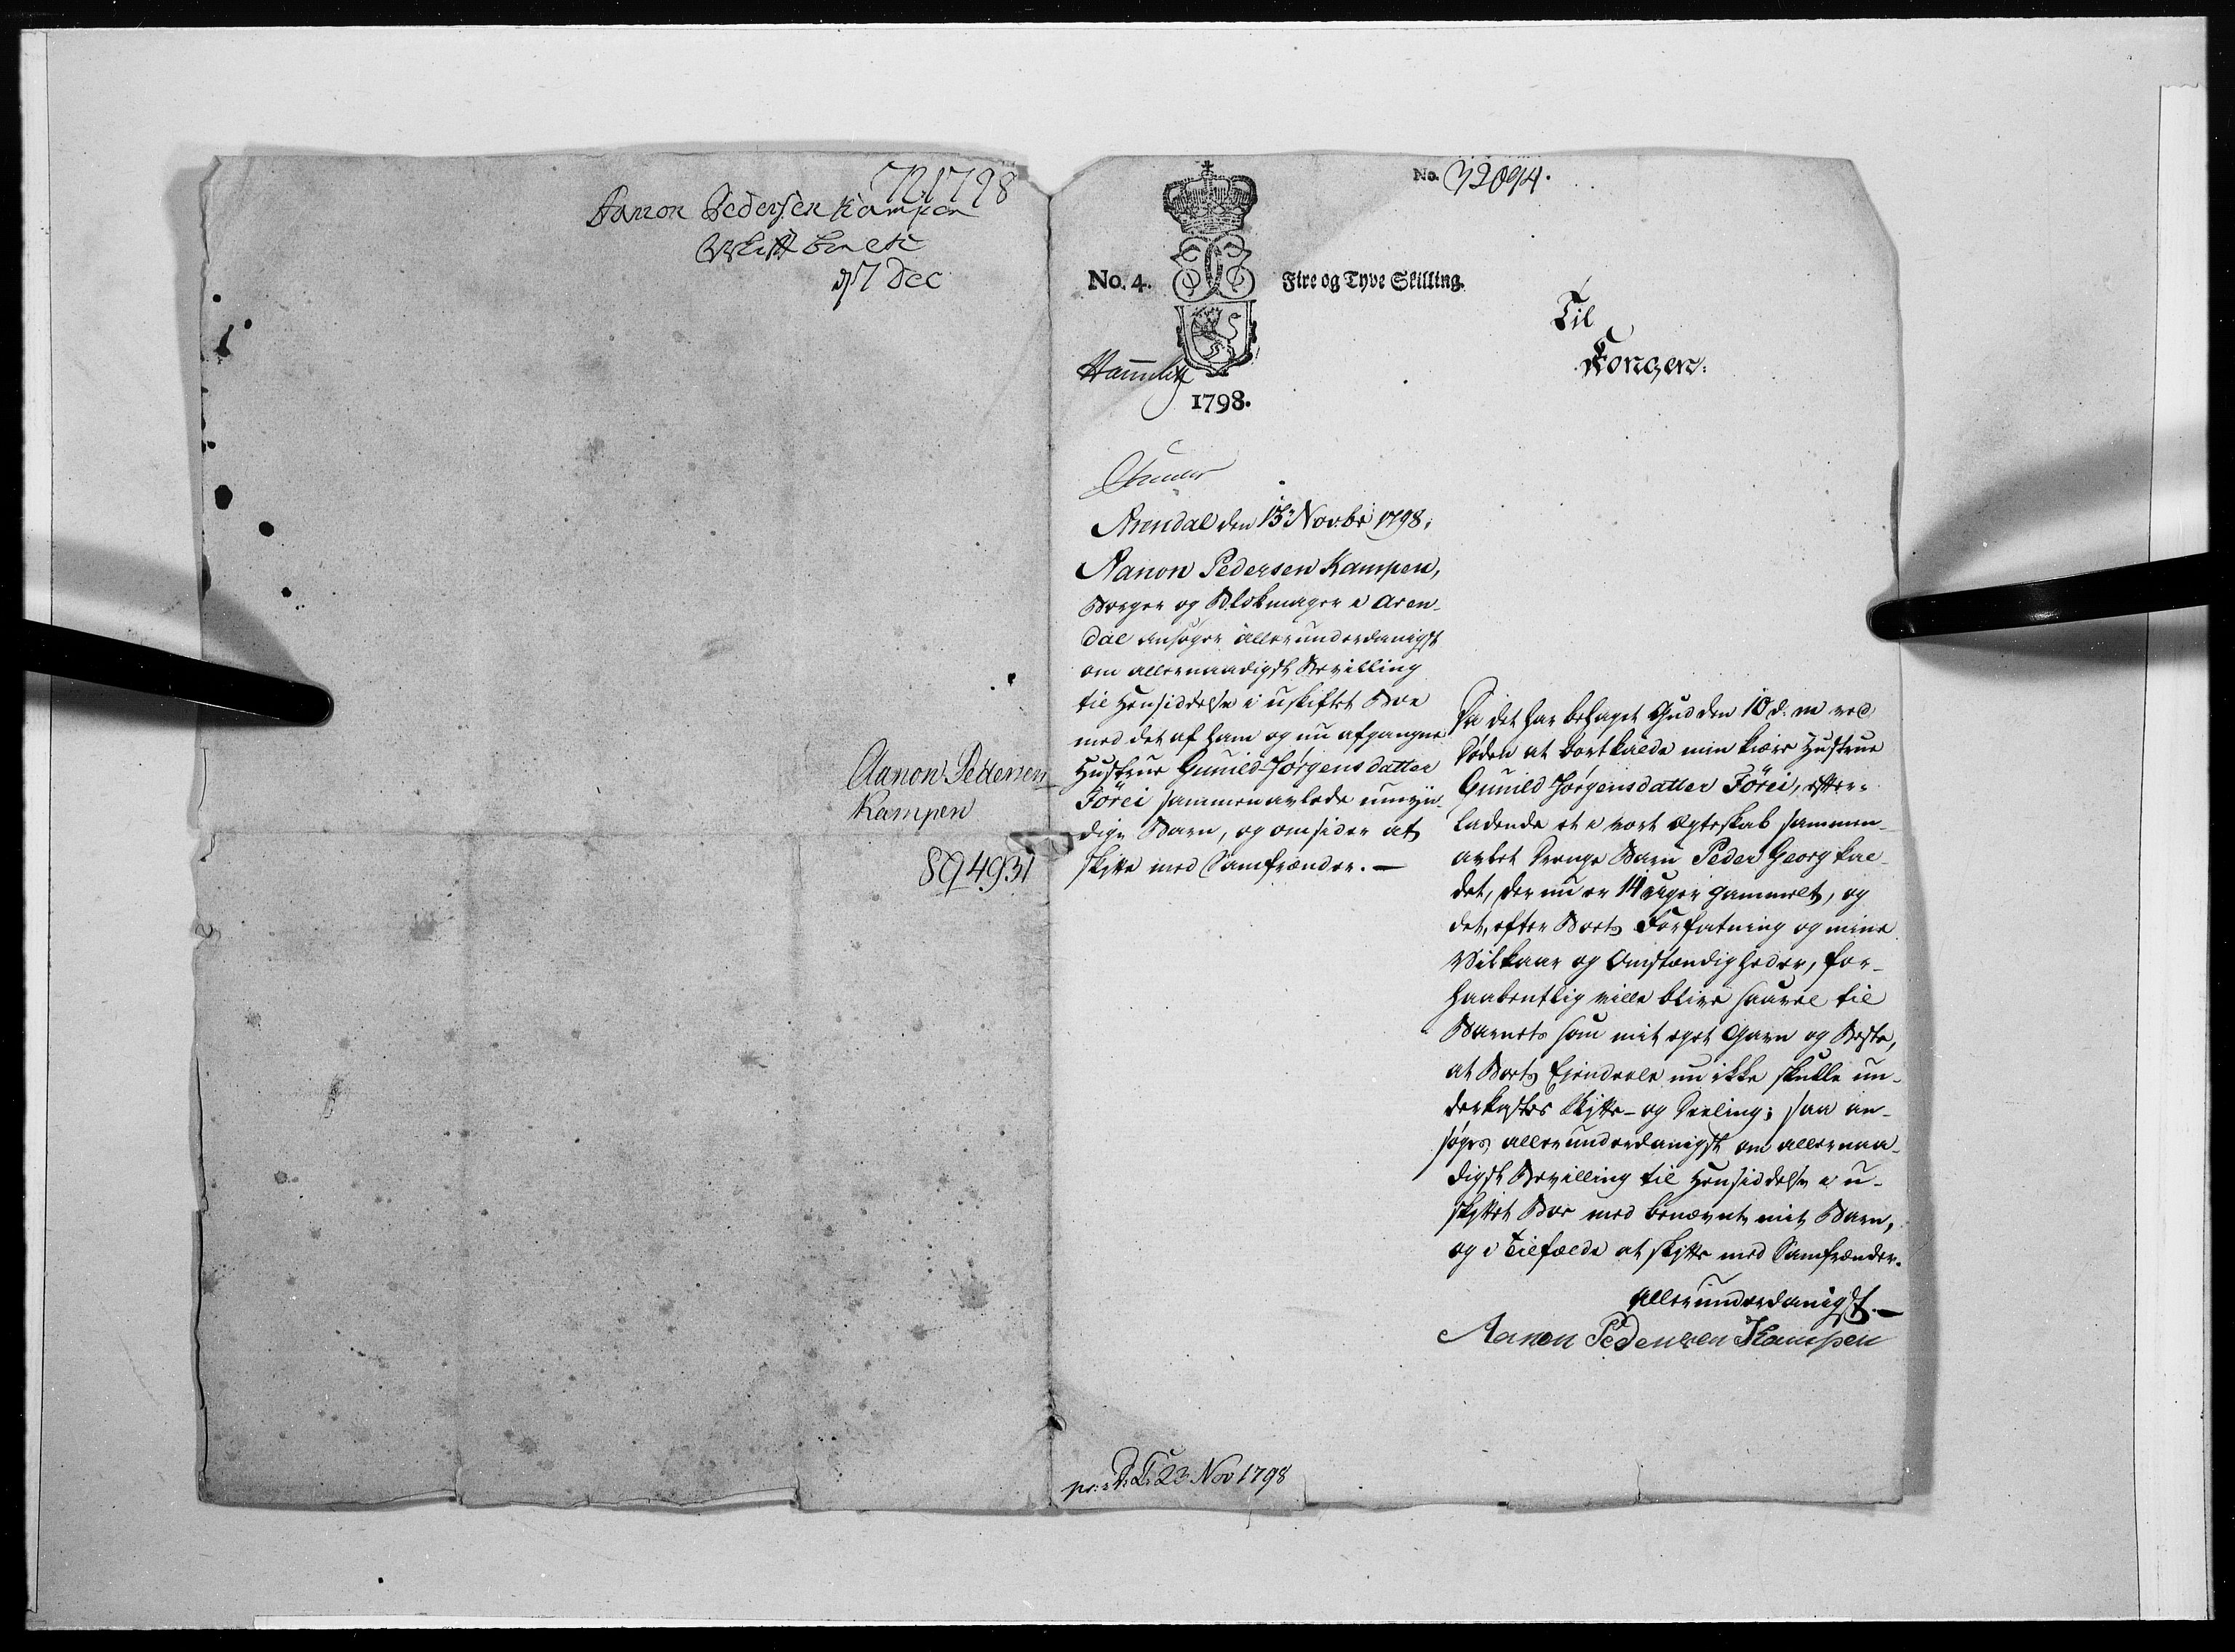 72 1798
Aanon Pedersen Kampen
d 7 Dec
Aanon Pedersen
Kampen
No. 32094.
No. 4.
Fire og Tyve Skilling.
1798.
Til
Kongen.
Arendal den 13 Novbr 1798.
Aanon Pedersen Kampen,
Borger og Blokmager i Aren-
dal ansøger allerunderdanigst
om allernaadigst Bevilling
til Hensiddelse i uskiftet Boe
med det af ham og nu afgangne
Hustrue Gunild Jørgensdatter
Förei sammenavlede umyn-
dige Barn, og omsider at
skifte med Samfrænder. —
Da det har behaget Gud den 10 d. m ved
Døden at bortkalde min kiære Hustrue
Gunild Jørgensdatter Förei, efter-
ladende et i vort Ægteskab sammen-
avlet Drenge Barn Peder Georg kal-
det, der nu er 14 uger gammelt, og
det, efter Boets Forfatning og mine
Vilkaar og Omstændigheder, for-
haabentlig ville blive saavel til
Barnets som mit eget Gavn og Beste,
at Boets Eiendeele nu ikke skulle un-
derkastes Skifte- og Deeling; saa an-
søges allerunderdanigst om allernaa-
digst Bevilling til Hensiddelse i u-
skiftet Boe med benævnte mit Barn,
og i Tilfælde at skifte med Samfrænder.
Allerunderdanigst. —
Aanon Pedersen Kampen
23 Nov 1798